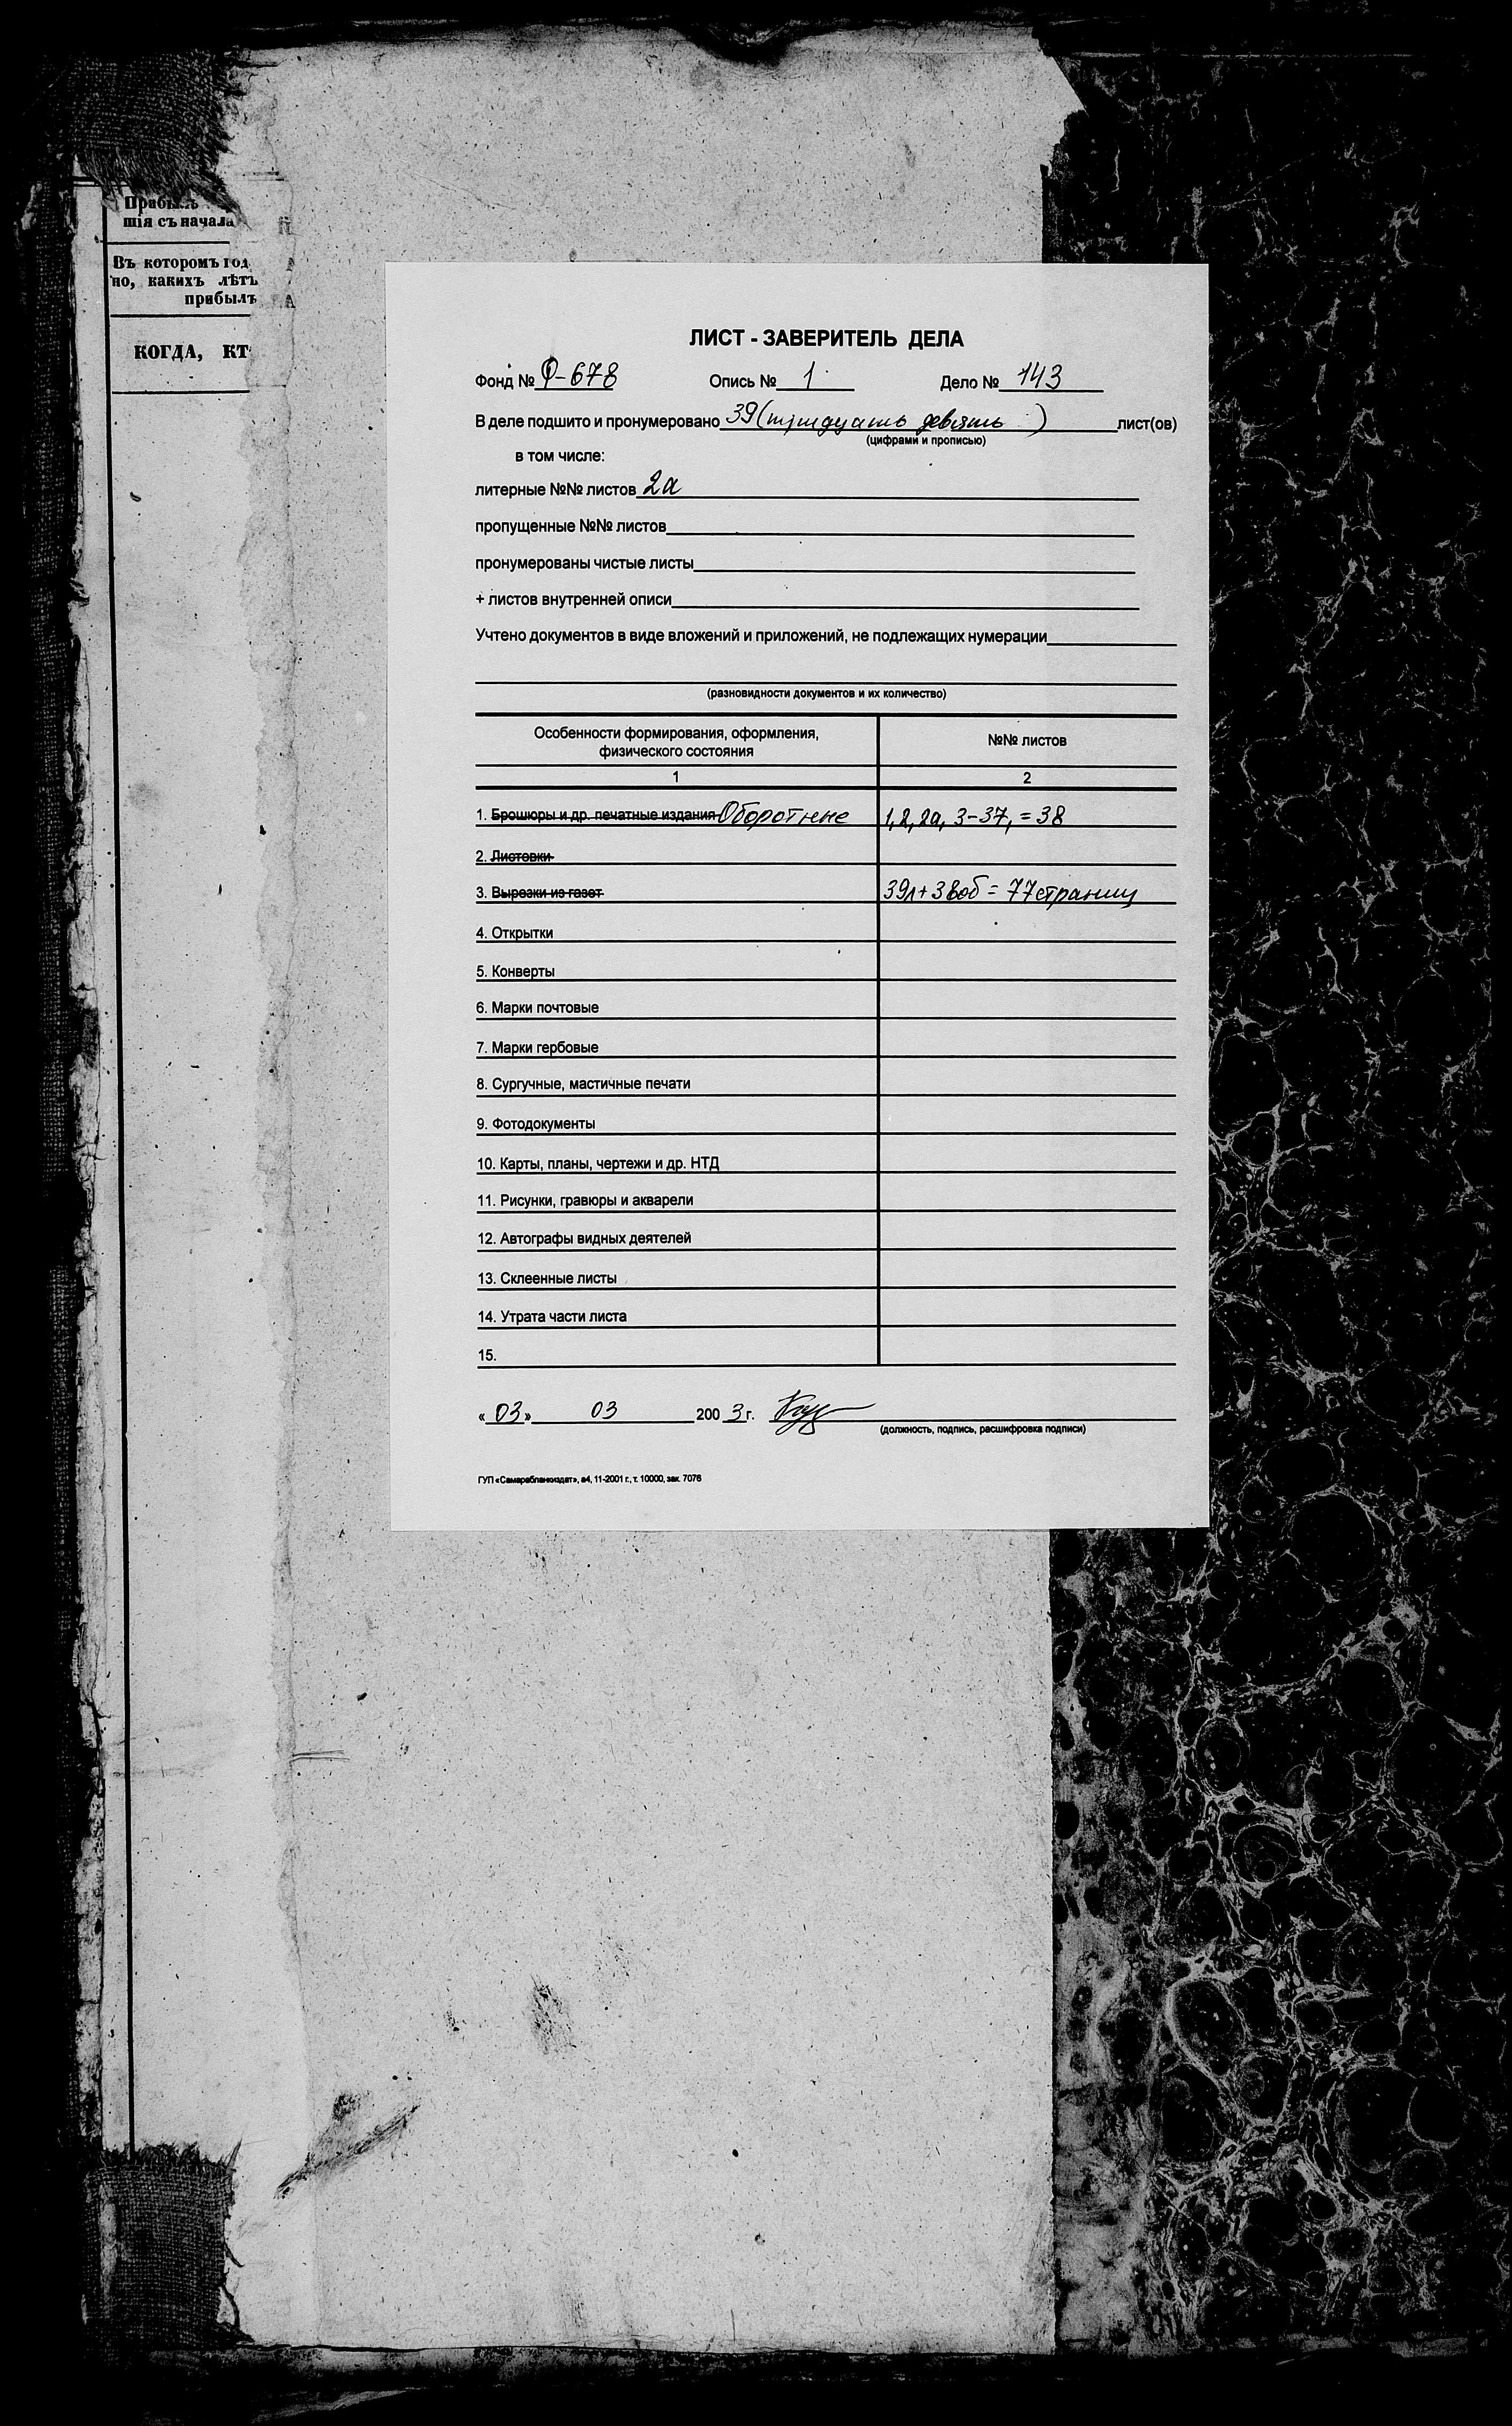 Прибы
шія съ начала
Въ которомъ год
но, какихъ лѣтъ
прибылъ
КОГДА, КТ
ЛИСТ - ЗАВЕРИТЕЛЬ ДЕЛА
Фонд № Ф-678 Опись № 1 Дело № 143
В деле подшито и пронумеровано 39 (тридцать девять) лист(ов)
(цифрами и прописью)
в том числе:
литерные №№ листов 2а
пропущенные №№ листов
пронумерованы чистые листы
+ листов внутренней описи
Учтено документов в виде вложений и приложений, не подлежащих нумерации
(разновидности документов и их количество)
Особенности формирования, оформления, №№ листов
физического состояния
1 2
1. Брошюры и др. печатные издания Оборотные 1, 2, 2а, 3-37, = 38
2. Листовки
3. Вырезки из газет 39л + 38об = 77 страниц
4. Открытки
5. Конверты
6. Марки почтовые
7. Марки гербовые
8. Сургучные, мастичные печати
9. Фотодокументы
10. Карты, планы, чертежи и др. НТД
11. Рисунки, гравюры и акварели
12. Автографы видных деятелей
13. Склеенные листы
14. Утрата части листа
15.
« 03 » 03 200 3 г.
(должность, подпись, расшифровка подписи)
ГУП «Самарабланкиздат», а4, 11-2001 г., т. 10000, зак. 7076